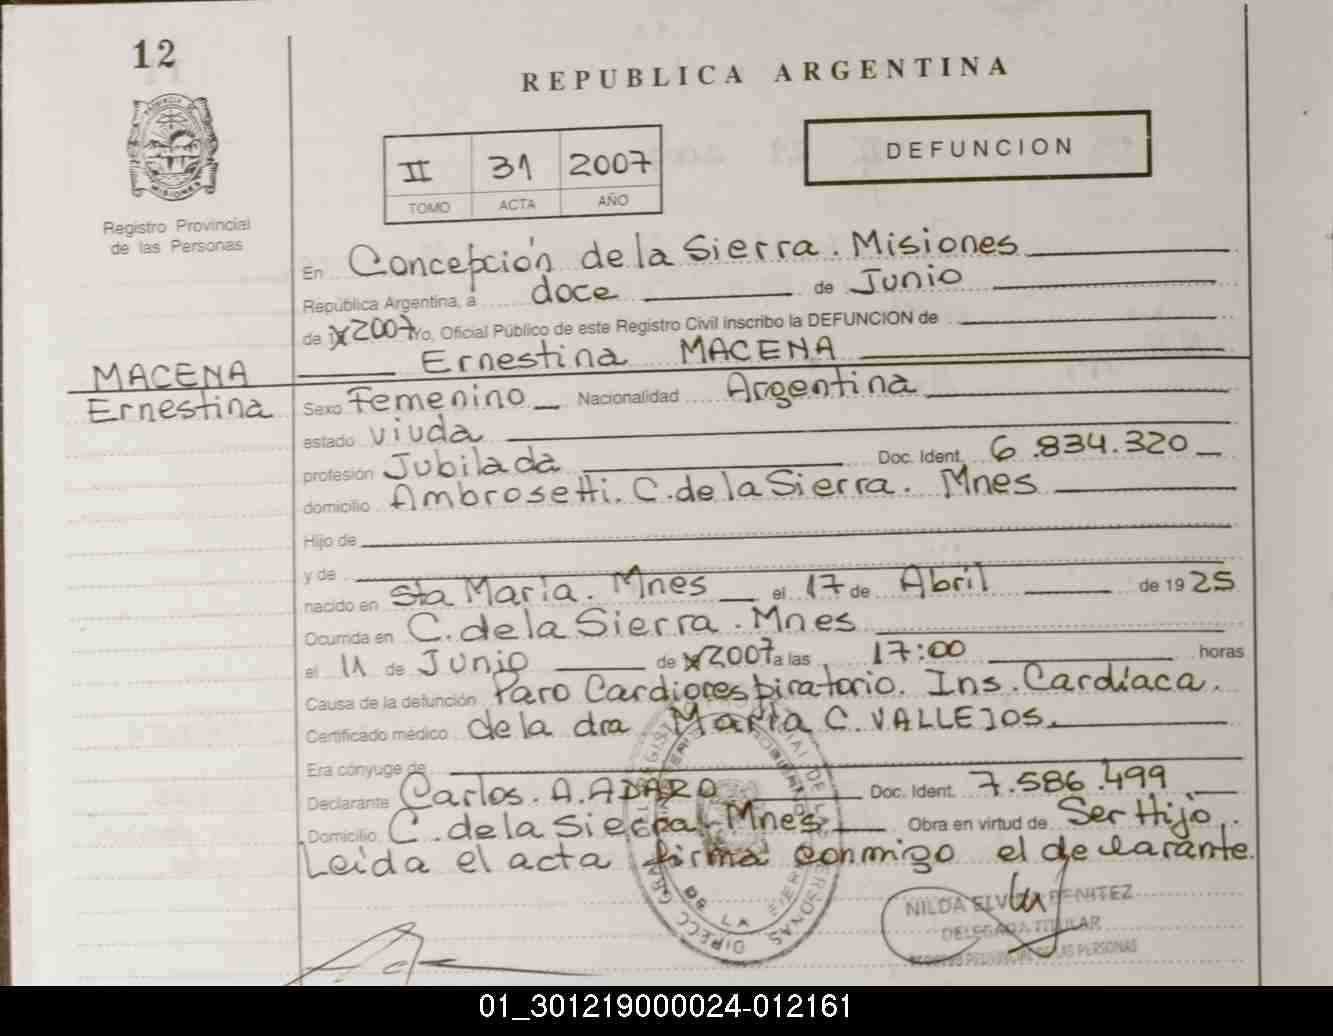 12
REPUBLICA ARGENTINA
DEFUNCION
II 31 2007
TOMO ACTA AÑO
Registro Provincial
de las Personas
En Concepción de la Sierra. Misiones
República Argentina, a doce de Junio
de 2007 yo, Oficial Público de este Registro Civil inscribo la DEFUNCION de
Ernestina MACENA
MACENA
Ernestina
Sexo Femenino Nacionalidad Argentina
estado viuda
profesión Jubilada Doc. Ident. 6.834.320
domicilio Ambrosetti. C. de la Sierra. Mnes
Hijo de
y de
nacido en Sta María. Mnes el 17 de Abril de 1925
Ocurrida en C. de la Sierra. Mnes
el 11 de Junio de 2007 a las 17:00 horas
Causa de la defunción Paro Cardiorespiratorio. Ins. Cardíaca.
Certificado médico de la dra María C. VALLEJOS.
Era cónyuge de
Declarante Carlos. A. ADARO Doc. Ident. 7.586.499
Domicilio C. de la Sierra. Mnes Obra en virtud de Ser Hijo.
Leída el acta firma conmigo el declarante.
NILDA BENITEZ
DELEGADA TITULAR
01_301219000024-012161